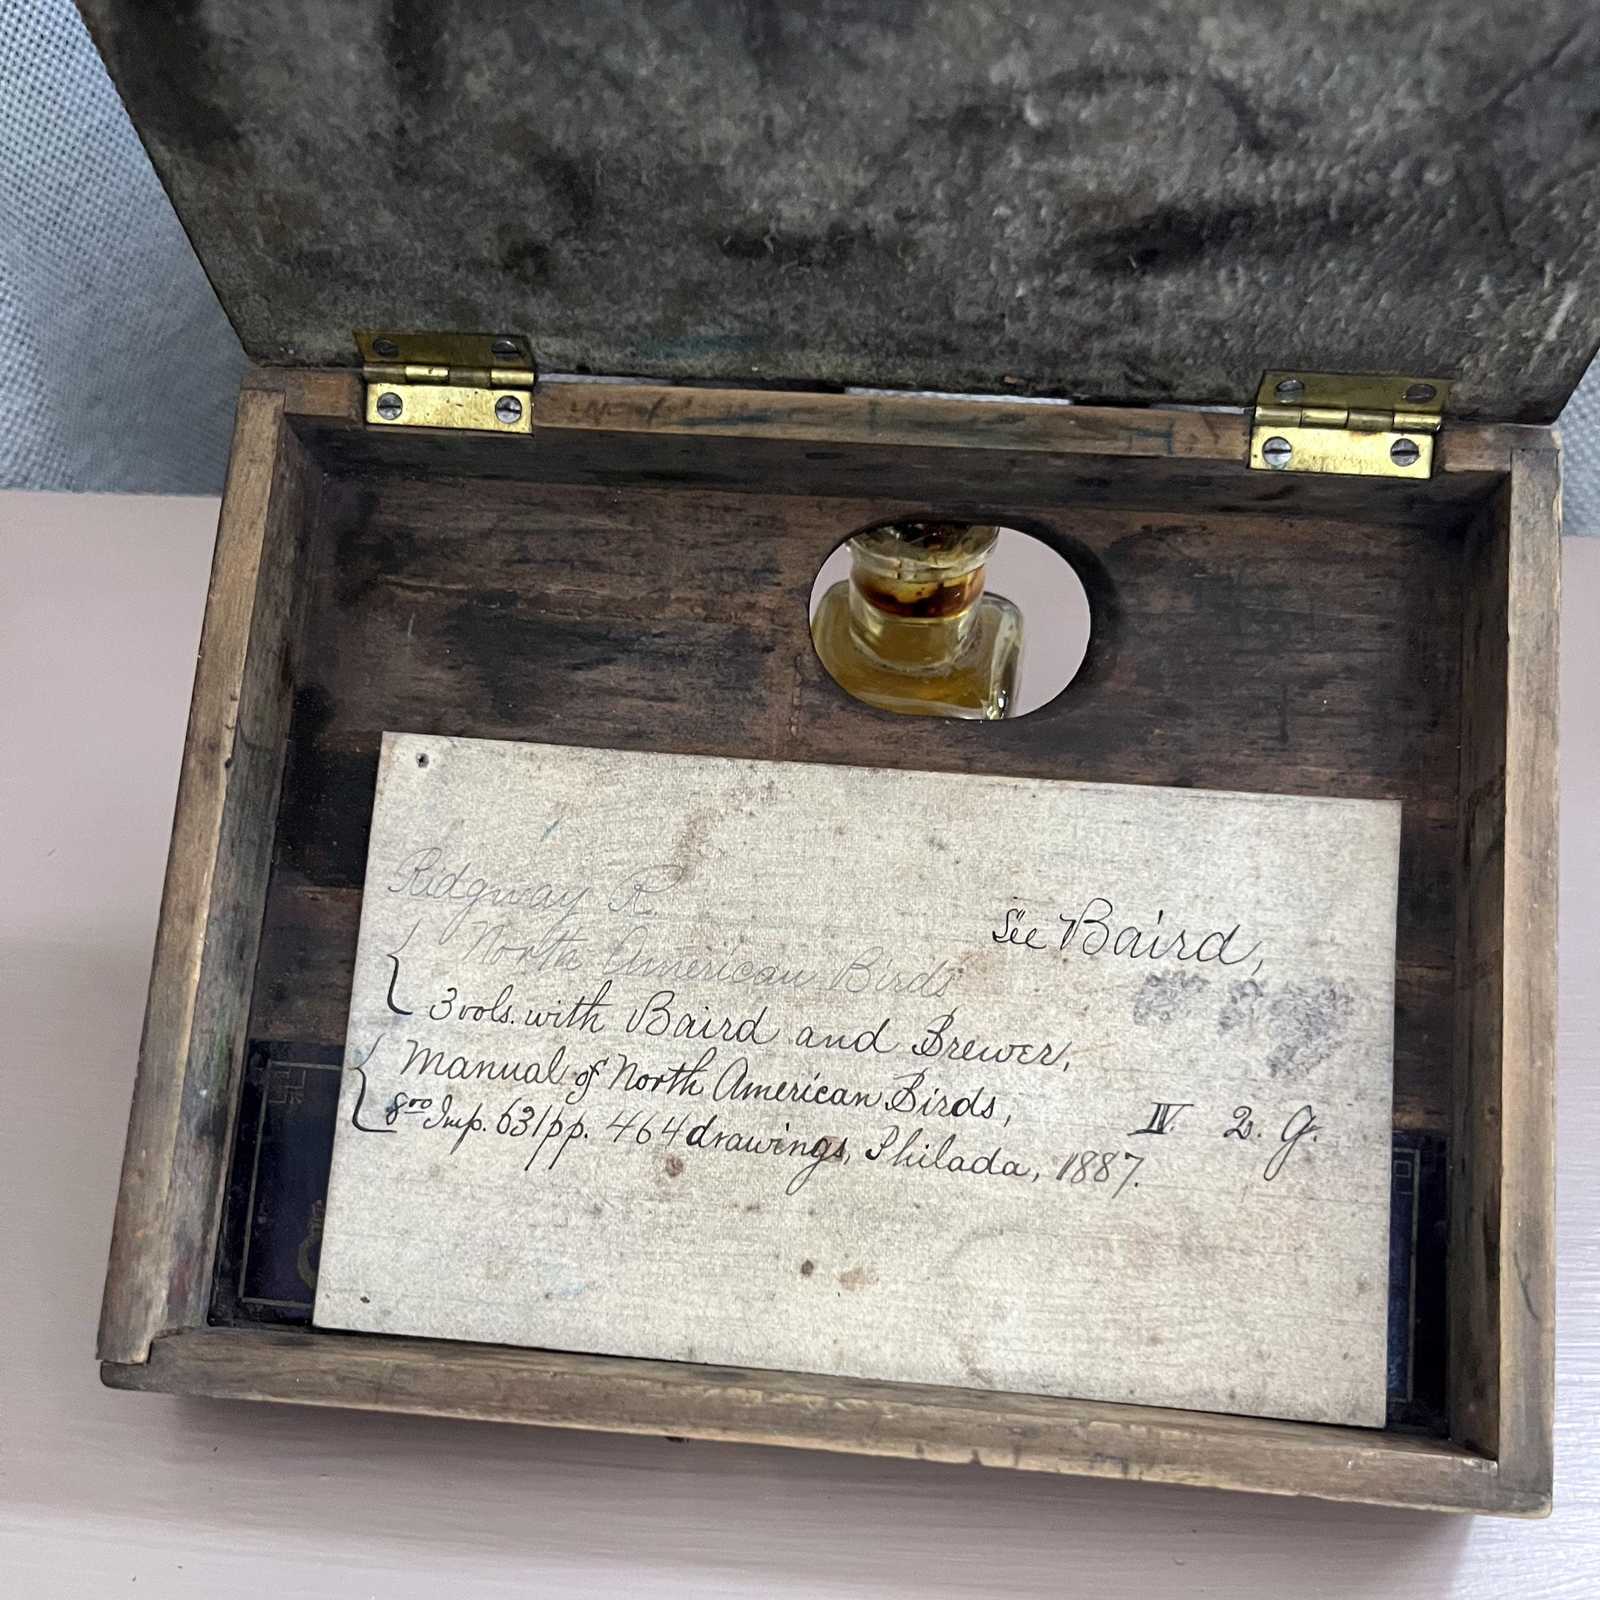 Ridgway R.
See Baird,
North American Birds
3 vols. with Baird and Brewer,
Manual of North American Birds,
8vo Imp. 631pp. 464 drawings, Philada, 1887.
IV. 2. G.